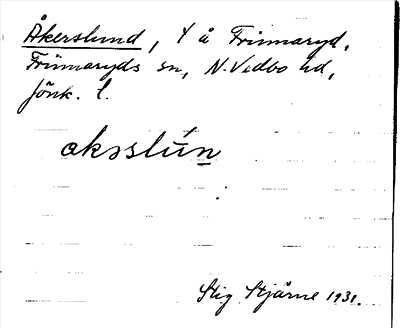 Åkerslund, t å Frinnaryd,
Frinnaryds sn, N. Vedbo hd,
Jönk. l.
oksslún
Stig Stjärne 1931.